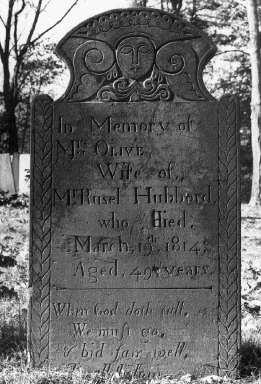 In Memory of
Mrs. OLIVE,
Wife of
Mr. Rusel Hubbord,
who Died,
March, 19th 1814,
Aged, 49, years.
When God doth call,
We must go,
& bid fair well,